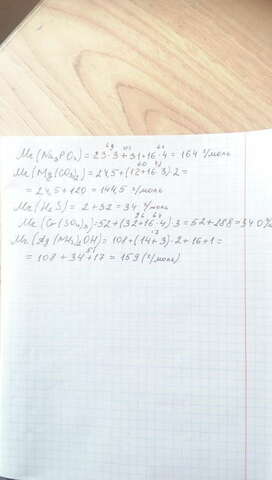 69 95 64
Mr(Na₃PO₄) = 23·3+31+16·4 = 164 г/моль
60
Mr(Mg(CO₃)₂ = 24,5+(12+16·3)·2=
= 24,5+120 = 144,5 г/моль
Mr(H₂S) = 2+32 = 34 г/моль
96 64
Mr(Cr(SO₄)₃)=52+(32+16·4)·3=52+288=340%
Mr(Ag(NH₃)₂OH) = 108+(14+3)·2+16+1=
51
= 108+34+17 = 159 (г/моль)